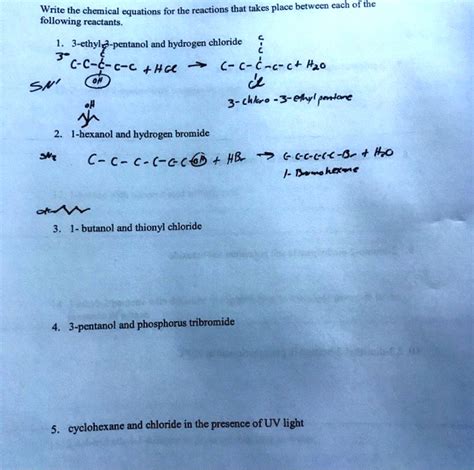 Write the chemical equations for the reactions that takes place between each of the
following reactants.
1. 3-ethyl-3-pentanol and hydrogen chloride
3-
C
C
C-C-C-C-C + HCl → C-C-C-C-C + H2O
OH
Cl
SN'
3-chloro-3-ethyl pentane
OH
2. 1-hexanol and hydrogen bromide
SN2
C-C-C-C-C-C OH + HBr → C-C-C-C-C-C-Br + H2O
1-Bromohexane
OH
3. 1- butanol and thionyl chloride
4. 3-pentanol and phosphorus tribromide
5. cyclohexane and chloride in the presence of UV light